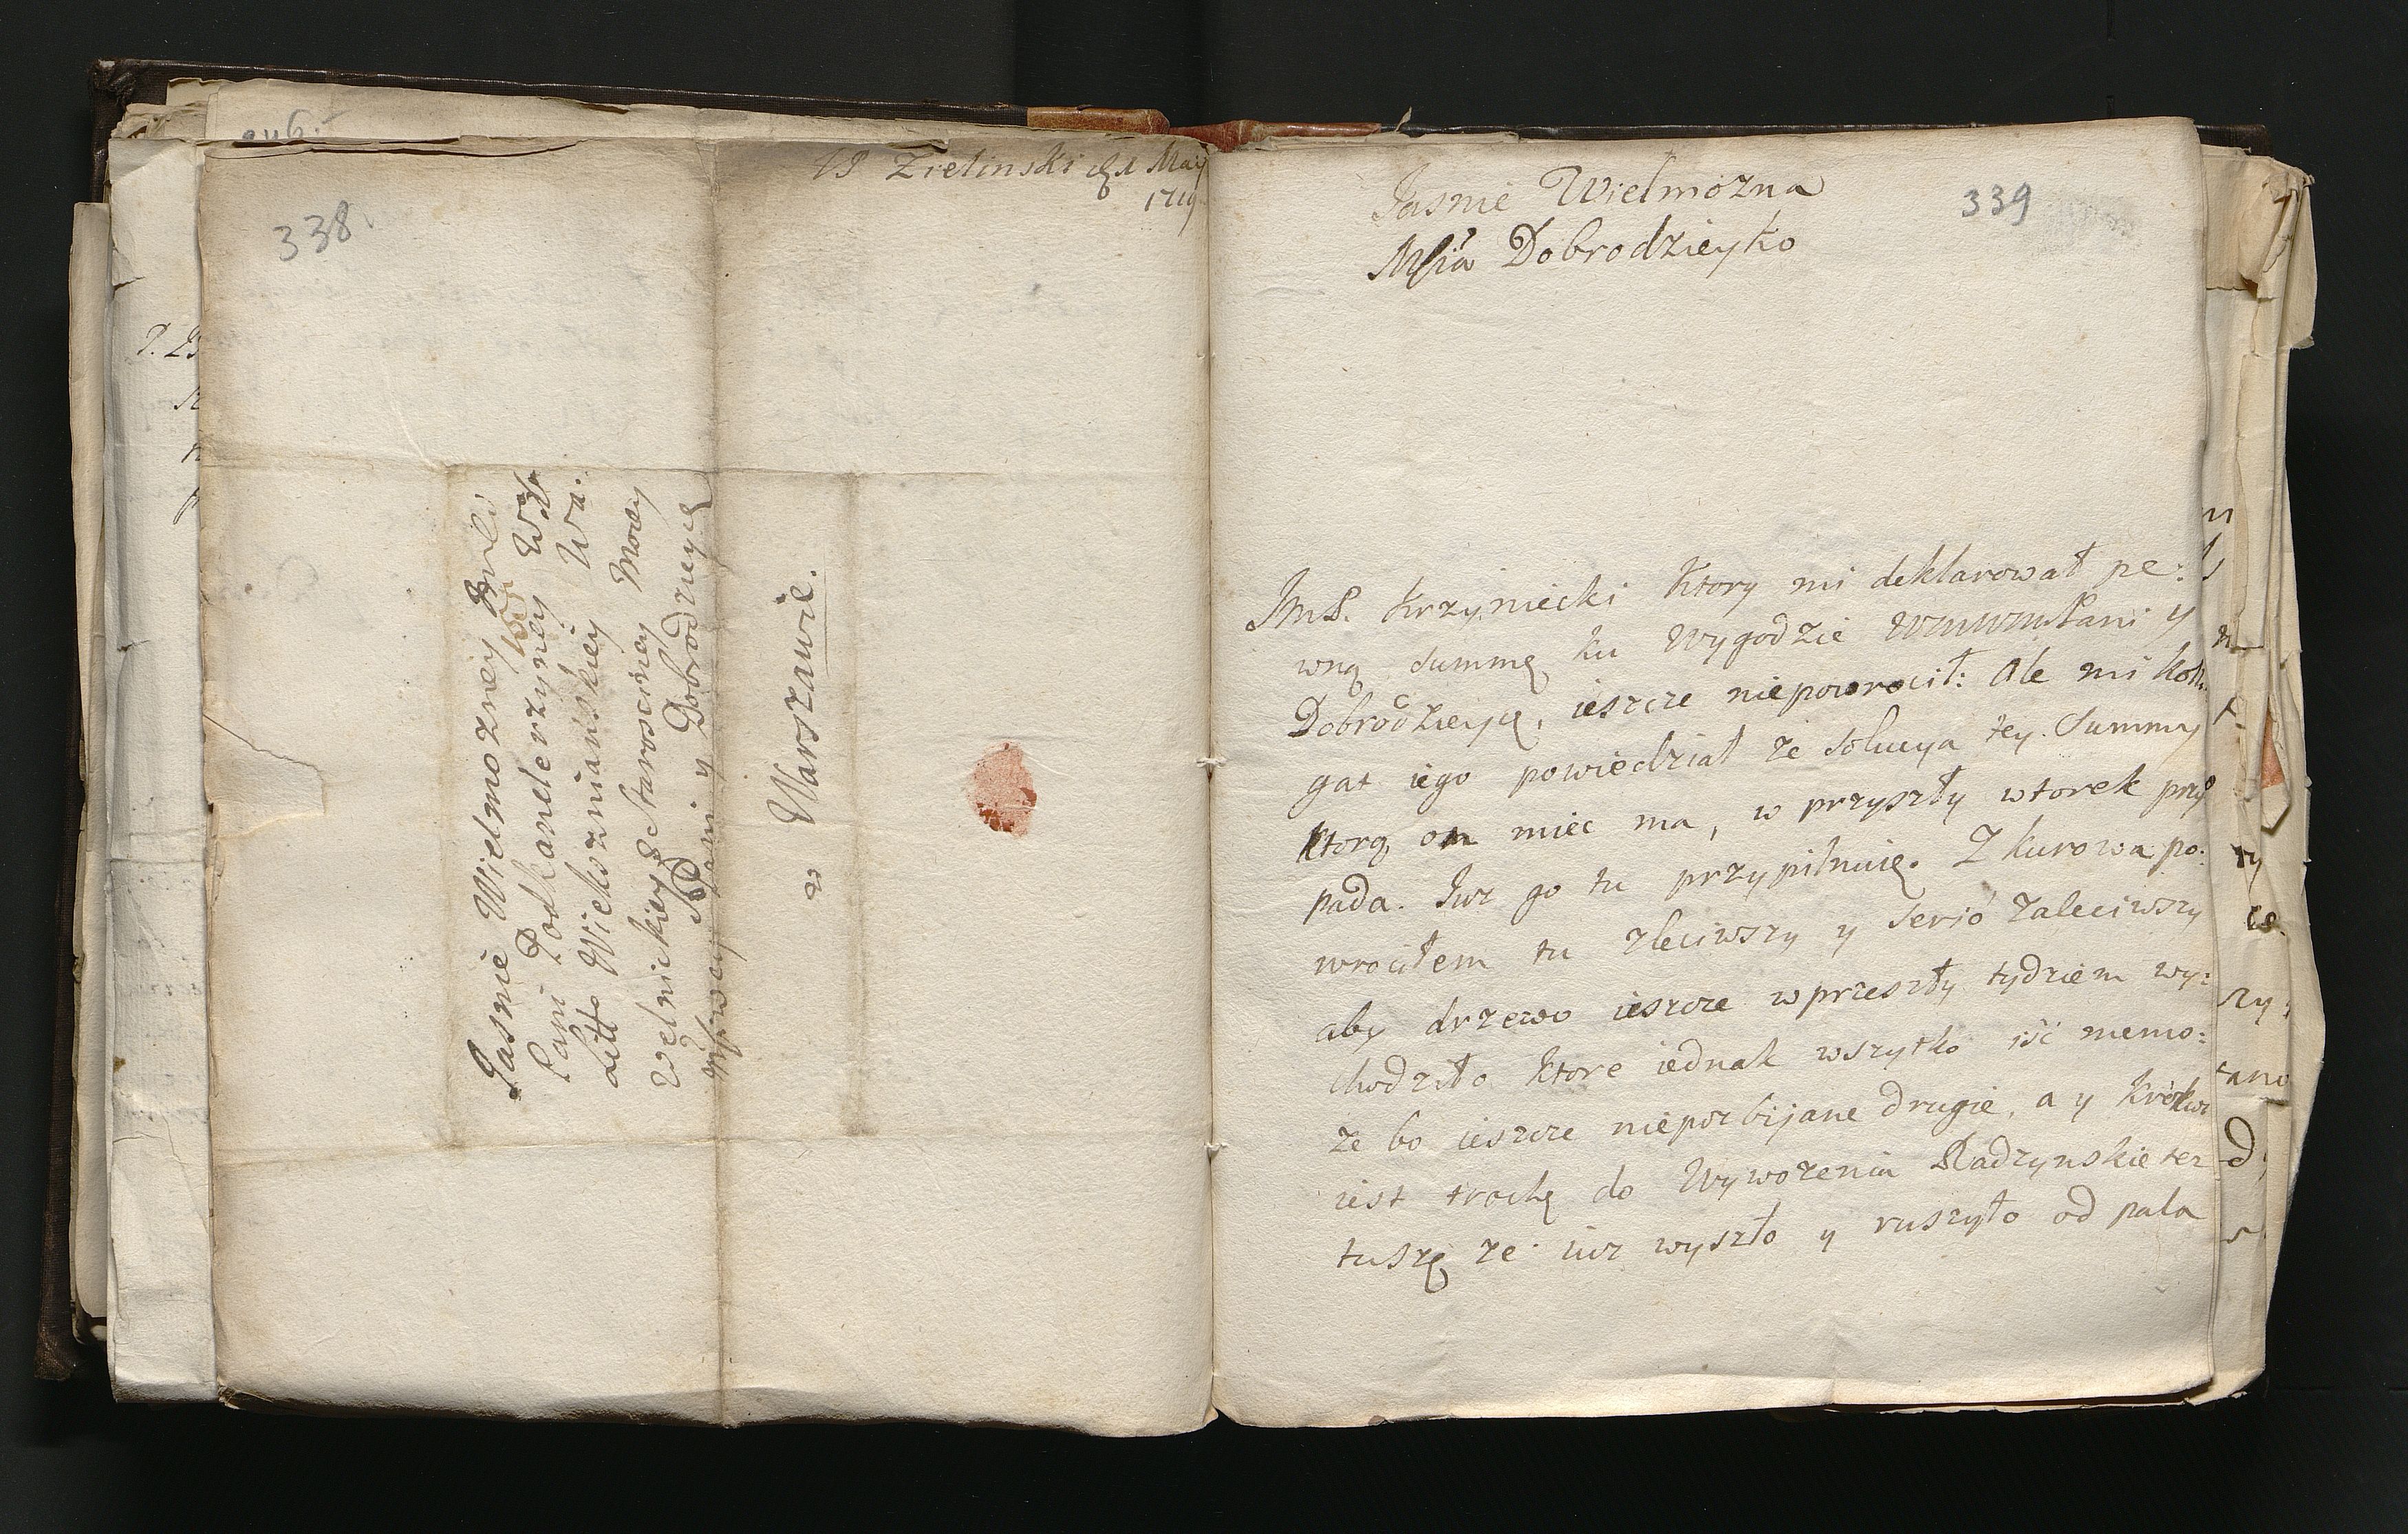 338
Zielinski 1 Maij
1719
Jasnie Wielmozney
Pani Podkanclerzyney
Litto Wieksznianskiey
Wdnickiey Starosciney Moiey
Wmcy Pani y Dobrodzieyce
w Warszawie.
339
Jasnie Wielmozna
Mścia Dobrodzieyko
JmP. Krzyniecki Ktory mi deklarował pe:
wną summę ku Wygodzie Wmwmpani y
Dobrodzieyce, ieszcze niepowrocił: Ale mi kolle
gat iego powiedział że solucya tey Summy
Ktorą on miec ma, w przyszły wtorek przy
pada. Juz go tu przypilnuię. Z kurowa po:
wrociłem tu zleciwszy y serio zaleciwszy
aby drzewo ieszcze w przeszły tydziem wy:
chodziło ktore iednak wszytko iść niemo:
ze bo ieszcze niepozbijane drugie, a y
iest trochę do Wywozenia Radzynskie tez
tuszę ze iuz wyszło y ruszyło od pala